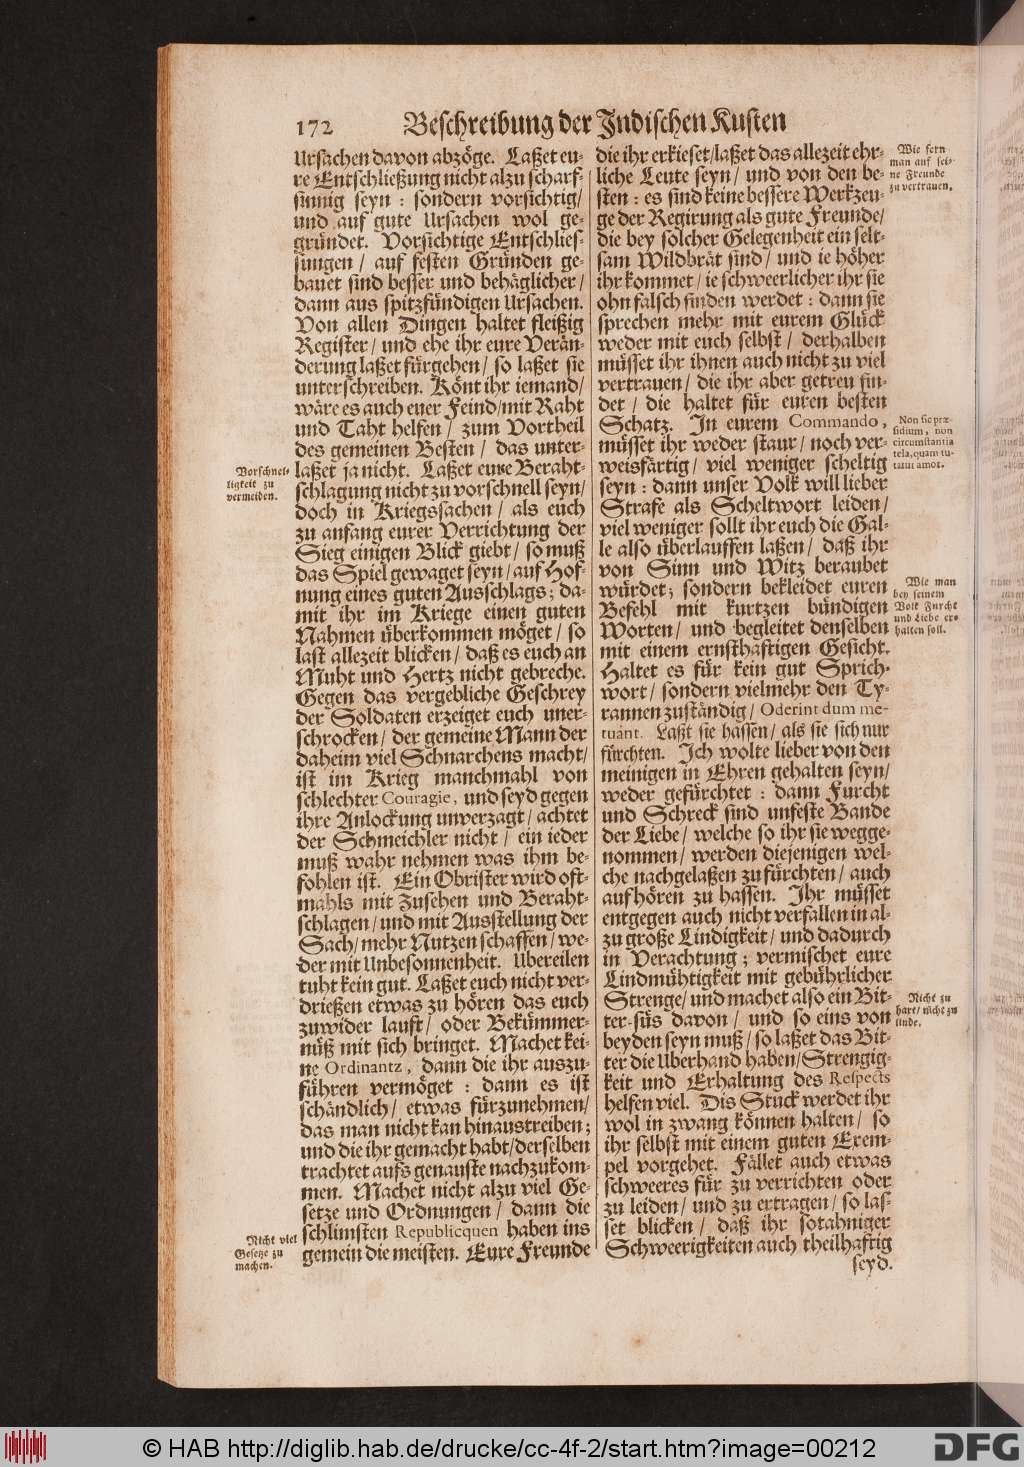 172 Beschreibung der Indischen Kusten
Ursachen davon abzöge. Laßet eu-
re Entschließung nicht alzu scharf-
sinnig seyn : sondern vorsichtig/
und auf gute Ursachen wol ge-
gründet. Vorsichtige Entschlies-
sungen / auf festen Gründen ge-
bauet sind besser und behäglicher/
dann aus spitzfündigen Ursachen.
Von allen Dingen haltet fleißig
Register/ und ehe ihr eure Verän-
derung laßet fürgehen/ so laßet sie
unterschreiben. Könt ihr iemand/
wäre es auch euer Feind/mit Raht
und Taht helfen/ zum Vortheil
des gemeinen Besten / das unter-
laßet ja nicht. Laßet eure Beraht-
schlagung nicht zu vorschnell seyn/
doch in Kriegssachen / als euch
zu anfang eurer Verrichtung der
Sieg einigen Blick giebt/ so muß
das Spiel gewaget seyn/auf Hof-
nung eines guten Ausschlags; da-
mit ihr im Kriege einen guten
Nahmen überkommen möget/ so
last allezeit blicken/ daß es euch an
Muht und Hertz nicht gebreche.
Gegen das vergebliche Geschrey
der Soldaten erzeiget euch uner-
schrocken/ der gemeine Mann der
daheim viel Schnarchens macht/
ist im Krieg manchmahl von
schlechter Couragie, und seyd gegen
ihre Anlockung unverzagt/ achtet
der Schmeichler nicht/ ein ieder
muß wahr nehmen was ihm be-
fohlen ist. Ein Obrister wird oft-
mahls mit Zusehen und Beraht-
schlagen/und mit Ausstellung der
Sach/mehr Nutzen schaffen/we-
der mit Unbesonnenheit. Ubereilen
tuht kein gut. Laßet euch nicht ver-
drießen etwas zu hören das euch
zuwider lauft/ oder Bekümmer-
nüß mit sich bringet. Machet kei-
ne Ordinantz, dann die ihr auszu-
führen vermöget : dann es ist
schändlich/ etwas fürzunehmen/
das man nicht kan hinaustreiben;
und die ihr gemacht habt/derselben
trachtet aufs genauste nachzukom-
men. Machet nicht alzu viel Ge-
setze und Ordnungen / dann die
schlimsten Republicquen haben ins
gemein die meisten. Eure Freunde
Vorschnel-
ligkeit zu
vermeiden.
Nicht viel
Gesetze zu
machen.
die ihr erkieset/laßet das allezeit ehr-
liche Leute seyn/ und von den be-
sten : es sind keine bessere Werkzeu-
ge der Regirung als gute Freunde/
die bey solcher Gelegenheit ein selt-
sam Wildbrät sind/ und ie höher
ihr kommet/ie schweerlicher ihr sie
ohn falsch finden werdet : dann sie
sprechen mehr mit eurem Glück
weder mit euch selbst/ derhalben
müsset ihr ihnen auch nicht zu viel
vertrauen/ die ihr aber getreu fin-
det / die haltet für euren besten
Schatz. In eurem Commando,
müsset ihr weder staur/ noch ver-
weisfärtig/ viel weniger scheltig
seyn : dann unser Volk will lieber
Strafe als Scheltwort leiden/
viel weniger sollt ihr euch die Gal-
le also überlauffen laßen/ daß ihr
von Sinn und Witz beraubet
würdet; sondern bekleidet euren
Befehl mit kurtzen bündigen
Worten/ und begleitet denselben
mit einem ernsthaftigen Gesicht.
Haltet es für kein gut Sprich-
wort/ sondern vielmehr den Ty-
rannen zuständig/ Oderint dum me-
tuánt. Laßt sie hassen/ als sie sich nur
fürchten. Ich wolte lieber von den
meinigen in Ehren gehalten seyn/
weder gefürchtet : dann Furcht
und Schreck sind unfeste Bande
der Liebe/ welche so ihr sie wegge-
nommen/ werden diejenigen wel-
che nachgelaßen zu fürchten/ auch
aufhören zu hassen. Ihr müsset
entgegen auch nicht verfallen in al-
zu große Lindigkeit/ und dadurch
in Verachtung; vermischet eure
Lindmühtigkeit mit gebührlicher
Strenge/ und machet also ein Bit-
ter-süs davon/ und so eins von
beyden seyn muß/ so laßet das Bit-
ter die Uberhand haben/Strengig-
keit und Erhaltung des Respects
helfen viel. Dis Stuck werdet ihr
wol in zwang können halten/ so
ihr selbst mit einem guten Exem-
pel vorgehet. Fället auch etwas
schweeres für zu verrichten oder
zu leiden/ und zu ertragen/ so las-
set blicken/ daß ihr sotahniger
Schweerigkeiten auch theilhaftig
seyd.
Wie fern
man auf sei-
ne Freunde
zu vertrauen.
Non sic præ-
sidium, non
circumstantia
tela, quam tu-
tatur amor.
Wie man
bey seinem
Volk Furcht
und Liebe er-
halten soll.
Nicht zu
hart/ nicht zu
linde.
© HAB http://diglib.hab.de/drucke/cc-4f-2/start.htm?image=00212
DFG